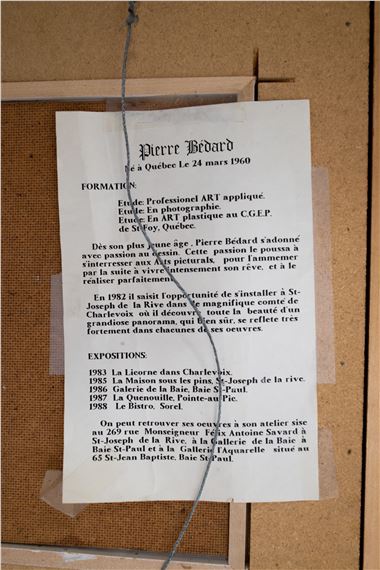 Pierre Bédard
Né à Québec Le 24 mars 1960
FORMATION:
Etude: Professionel ART appliqué.
Etude: En photographie.
Etude: En ART plastique au C.G.E.P.
de St-Foy, Québec.
Dès son plus jeune âge , Pierre Bédard s'adonné
avec passion au dessin. Cette passion le poussa à
s'interresser aux Arts picturals, pour l'ammemer
par la suite à vivre intensement son rêve, et à le
réaliser parfaitement.
En 1982 il saisit l'opportunité de s'installer à St-
Joseph de la Rive dans le magnifique comté de
Charlevoix où il découvre toute la beauté d'un
grandiose panorama, qui bien sûr, se reflete très
fortement dans chacunes de ses oeuvres.
EXPOSITIONS:
1983 La Licorne dans Charlevoix.
1985 La Maison sous les pins, St-Joseph de la rive.
1986 Galerie de la Baie, Baie St-Paul.
1987 La Quenouille, Pointe-au-Pic.
1988 Le Bistro, Sorel.
On peut retrouver ses oeuvres à son atelier sise
au 269 rue Monseigneur Félix Antoine Savard à
St-Joseph de la Rive, à la Gallerie de la Baie à
Baie St-Paul et à la Gallerie l'Aquarelle situé au
65 St-Jean Baptiste, Baie St-Paul.